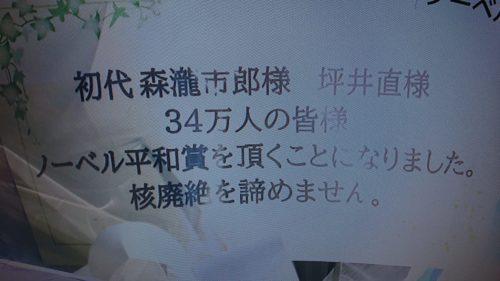 ノーベ
初代 森瀧市郎様　坪井直様
34万人の皆様
ノーベル平和賞を頂くことになりました。
核廃絶を諦めません。